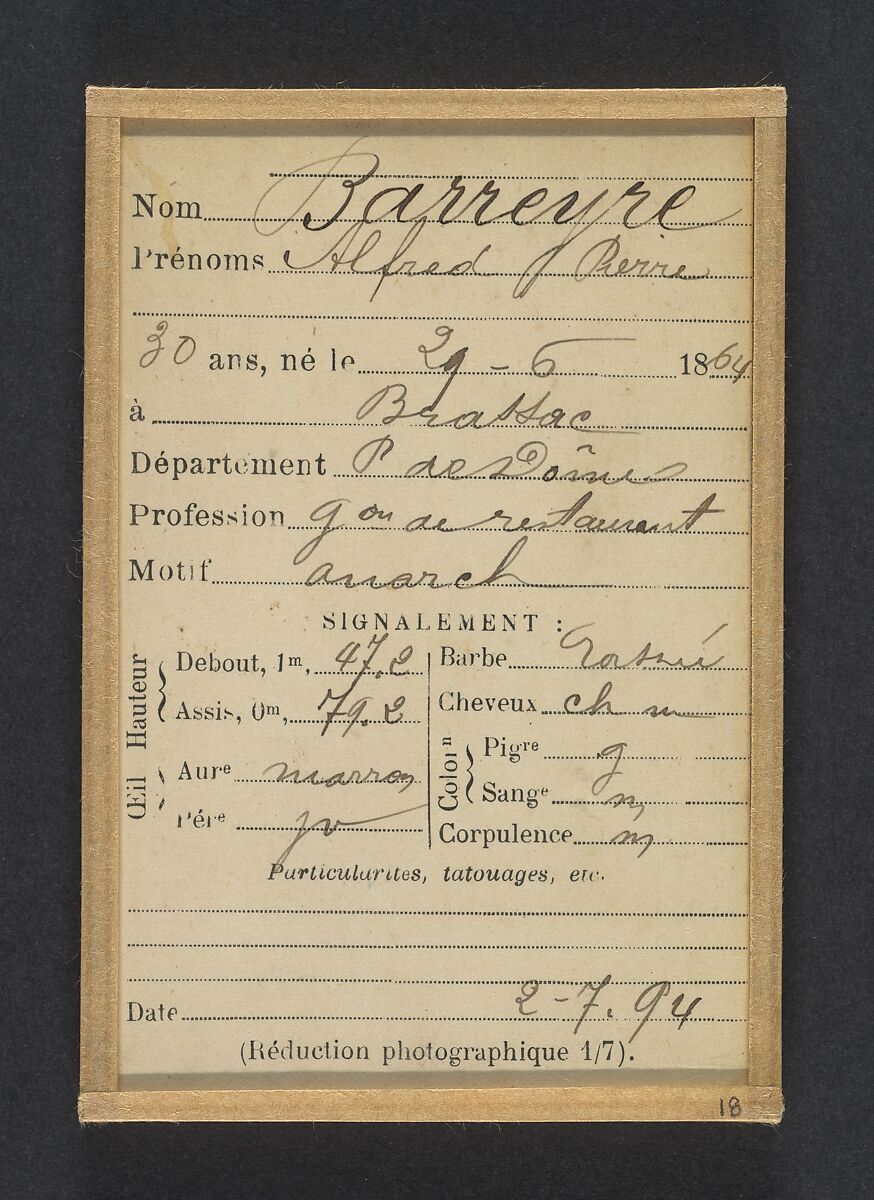 Nom Barreyre
Prénoms Alfred Pierre
30 ans, né le 29 - 6 1864
à Brassac
Département P de Dôme
Profession gon de restaurant
Motif anarch
SIGNALEMENT :
Hauteur
Debout, 1m, 47.2
Assis, 0m, 79.2
Œil
Aure marron
Pére
Barbe
Cheveux ch m
Colorn
Pigre g
Sange m
Corpulence m
Particularités, tatouages, etc.
Date 2-7.94
(Réduction photographique 1/7).
18